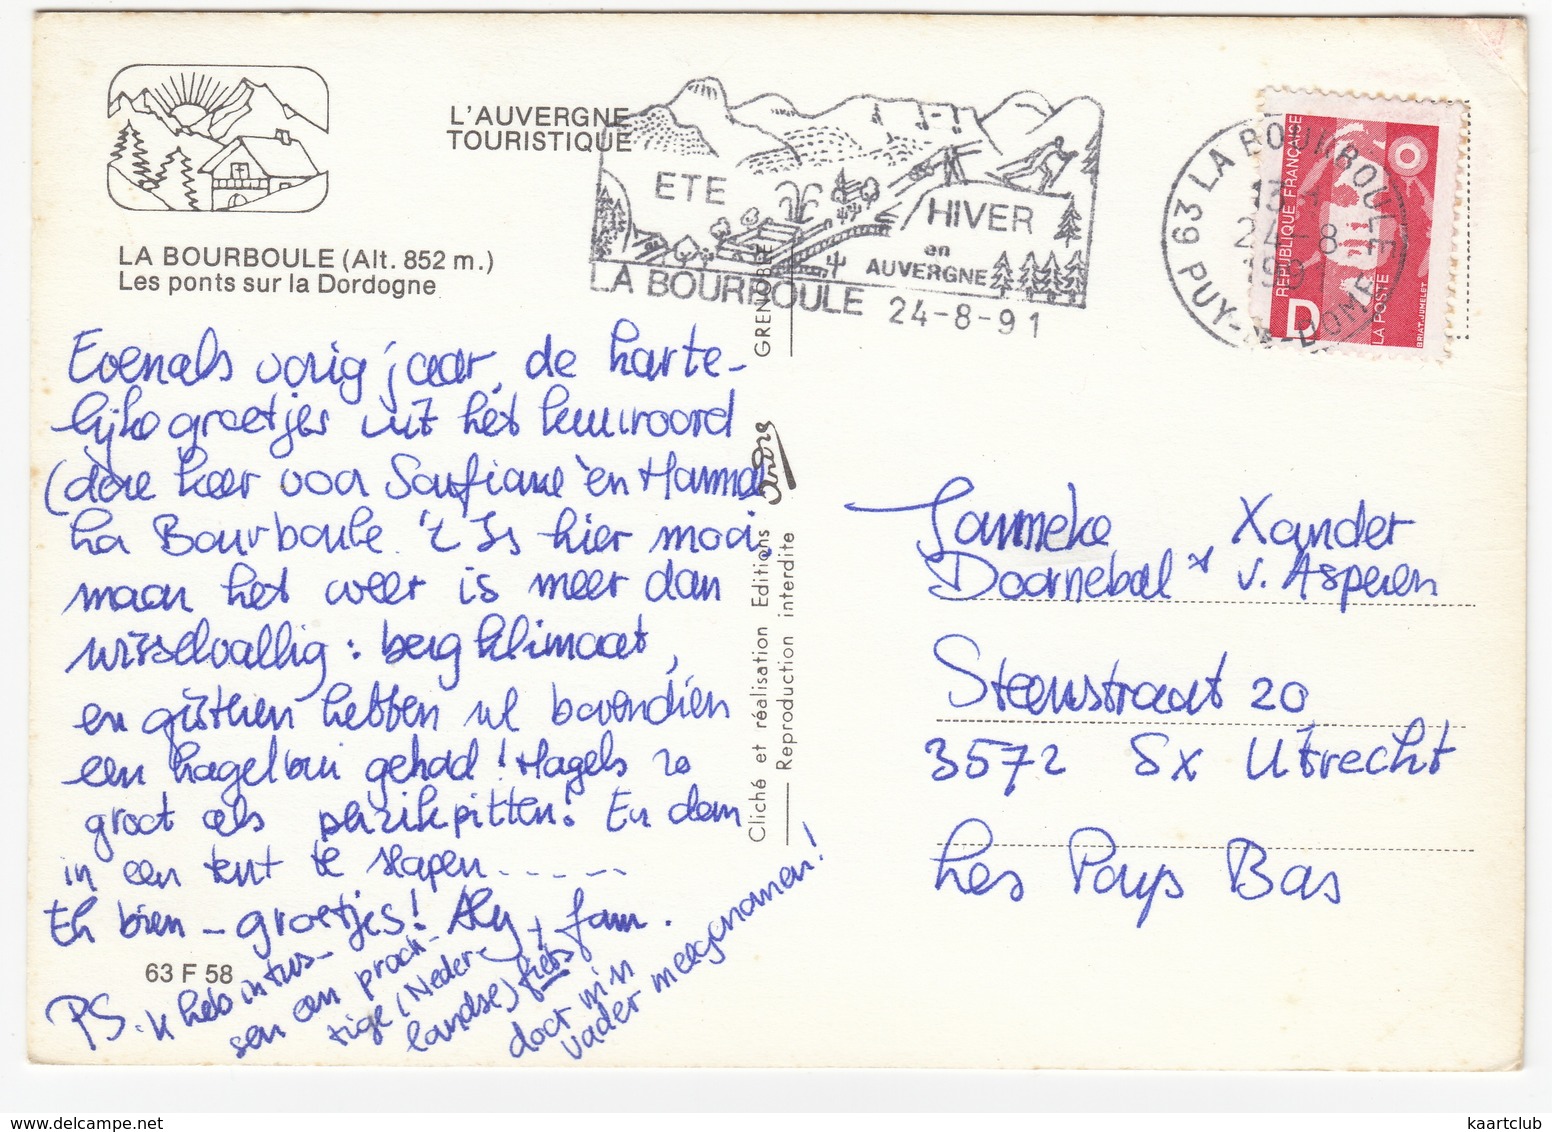 L'AUVERGNE
TOURISTIQUE
LA BOURBOULE (Alt. 852 m.)
Les ponts sur la Dordogne
ETE
HIVER
en
AUVERGNE
LA BOURBOULE 24-8-91
63 LA BOURBOULE
13
24-8
1991
PUY-DE-DOME
REPUBLIQUE FRANÇAISE
D
LA POSTE
BRIAT.JUMELET
Evenals vorig jaar, de harte-
lijke groetjes uit het kuuroord
(deze keer voor Soufiane en Hanna)
La Bourboule. 't Is hier mooi,
maar het weer is meer dan
wisselvallig: bergklimaat,
en gisteren hebben we bovendien
een hagelbui gehad! Hagels zo
groot als perzikpitten! En dan
in een tent te slapen.....
Eh bien - groetjes! Aly + fam.
PS. Ik heb intus-
sen een prach-
tige (Neder-
landse) fiets
door m'n
vader meegenomen!
63 F 58
Cliché et réalisation Editions André GRENOBLE
Reproduction interdite
Janneke Xander
Doornebal + v. Asperen
Steenstraat 20
3572 SX Utrecht
Les Pays Bas
kaartclub